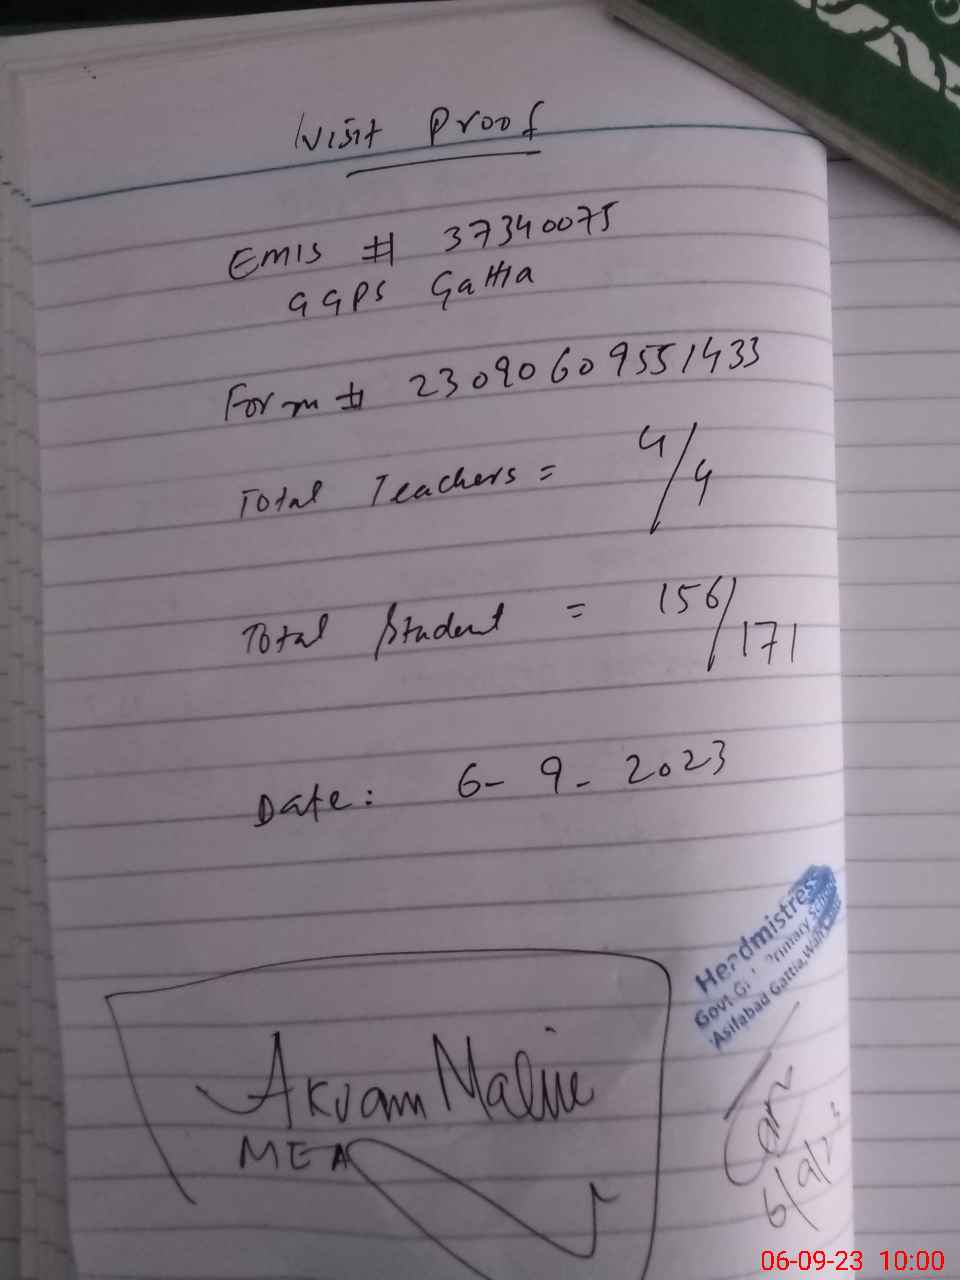 Visit Proof
EMIS # 37340075
GGPS Gattia
Form # 23090609551433
Total Teachers = 4/4
Total Student = 156/171
Date: 6-9-2023
Headmistress
Govt Primary School
Asifabad Gattia, Wah
Akram
MEA
06-09-23 10:00